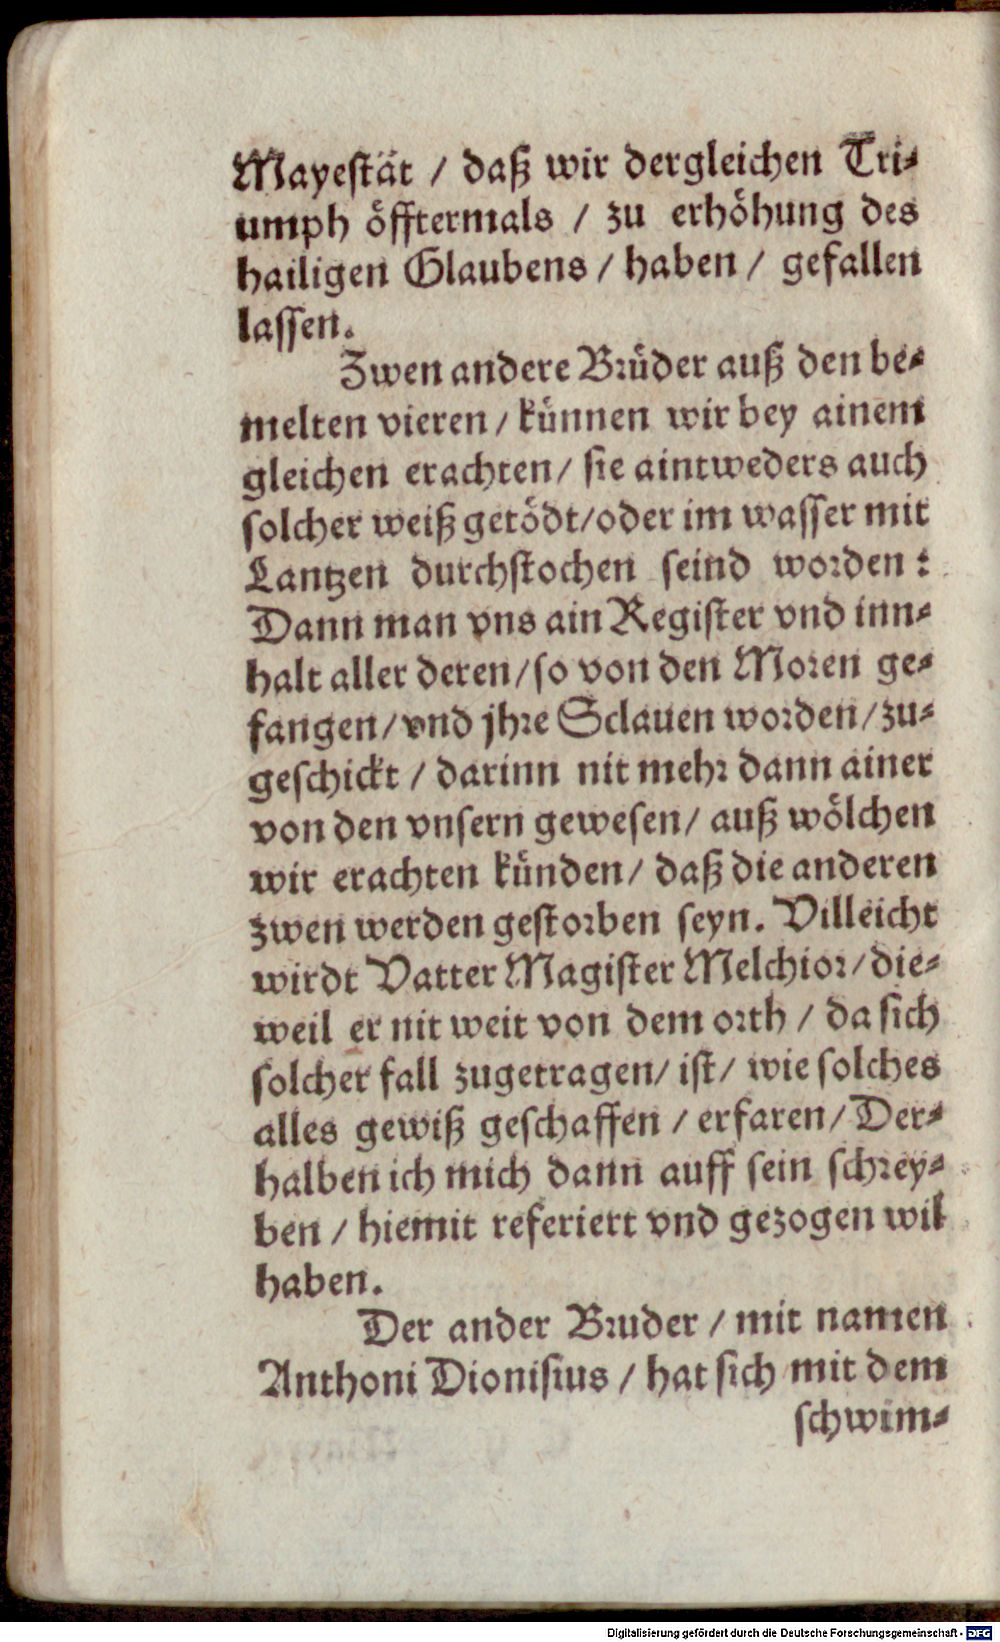 Mayestät / daß wir dergleichen Tri⸗
umph öfftermals / zu erhöhung des
hailigen Glaubens / haben / gefallen
lassen.
Zwen andere Brüder auß den be⸗
melten vieren / künnen wir bey ainem
gleichen erachten / sie aintweders auch
solcher weiß getödt / oder im wasser mit
Lantzen durchstochen seind worden :
Dann man vns ain Register vnd inn⸗
halt aller deren / so von den Moren ge⸗
fangen / vnd jhre Sclauen worden / zu⸗
geschickt / darinn nit mehr dann ainer
von den vnsern gewesen / auß wölchen
wir erachten künden / daß die anderen
zwen werden gestorben seyn. Villeicht
wirdt Vatter Magister Melchior / die⸗
weil er nit weit von dem orth / da sich
solcher fall zugetragen / ist / wie solches
alles gewiß geschaffen / erfaren / Der⸗
halben ich mich dann auff sein schrey⸗
ben / hiemit referiert vnd gezogen wil
haben.
Der ander Bruder / mit namen
Anthoni Dionisius / hat sich mit dem
schwim⸗
Digitalisierung gefördert durch die Deutsche Forschungsgemeinschaft - DFG